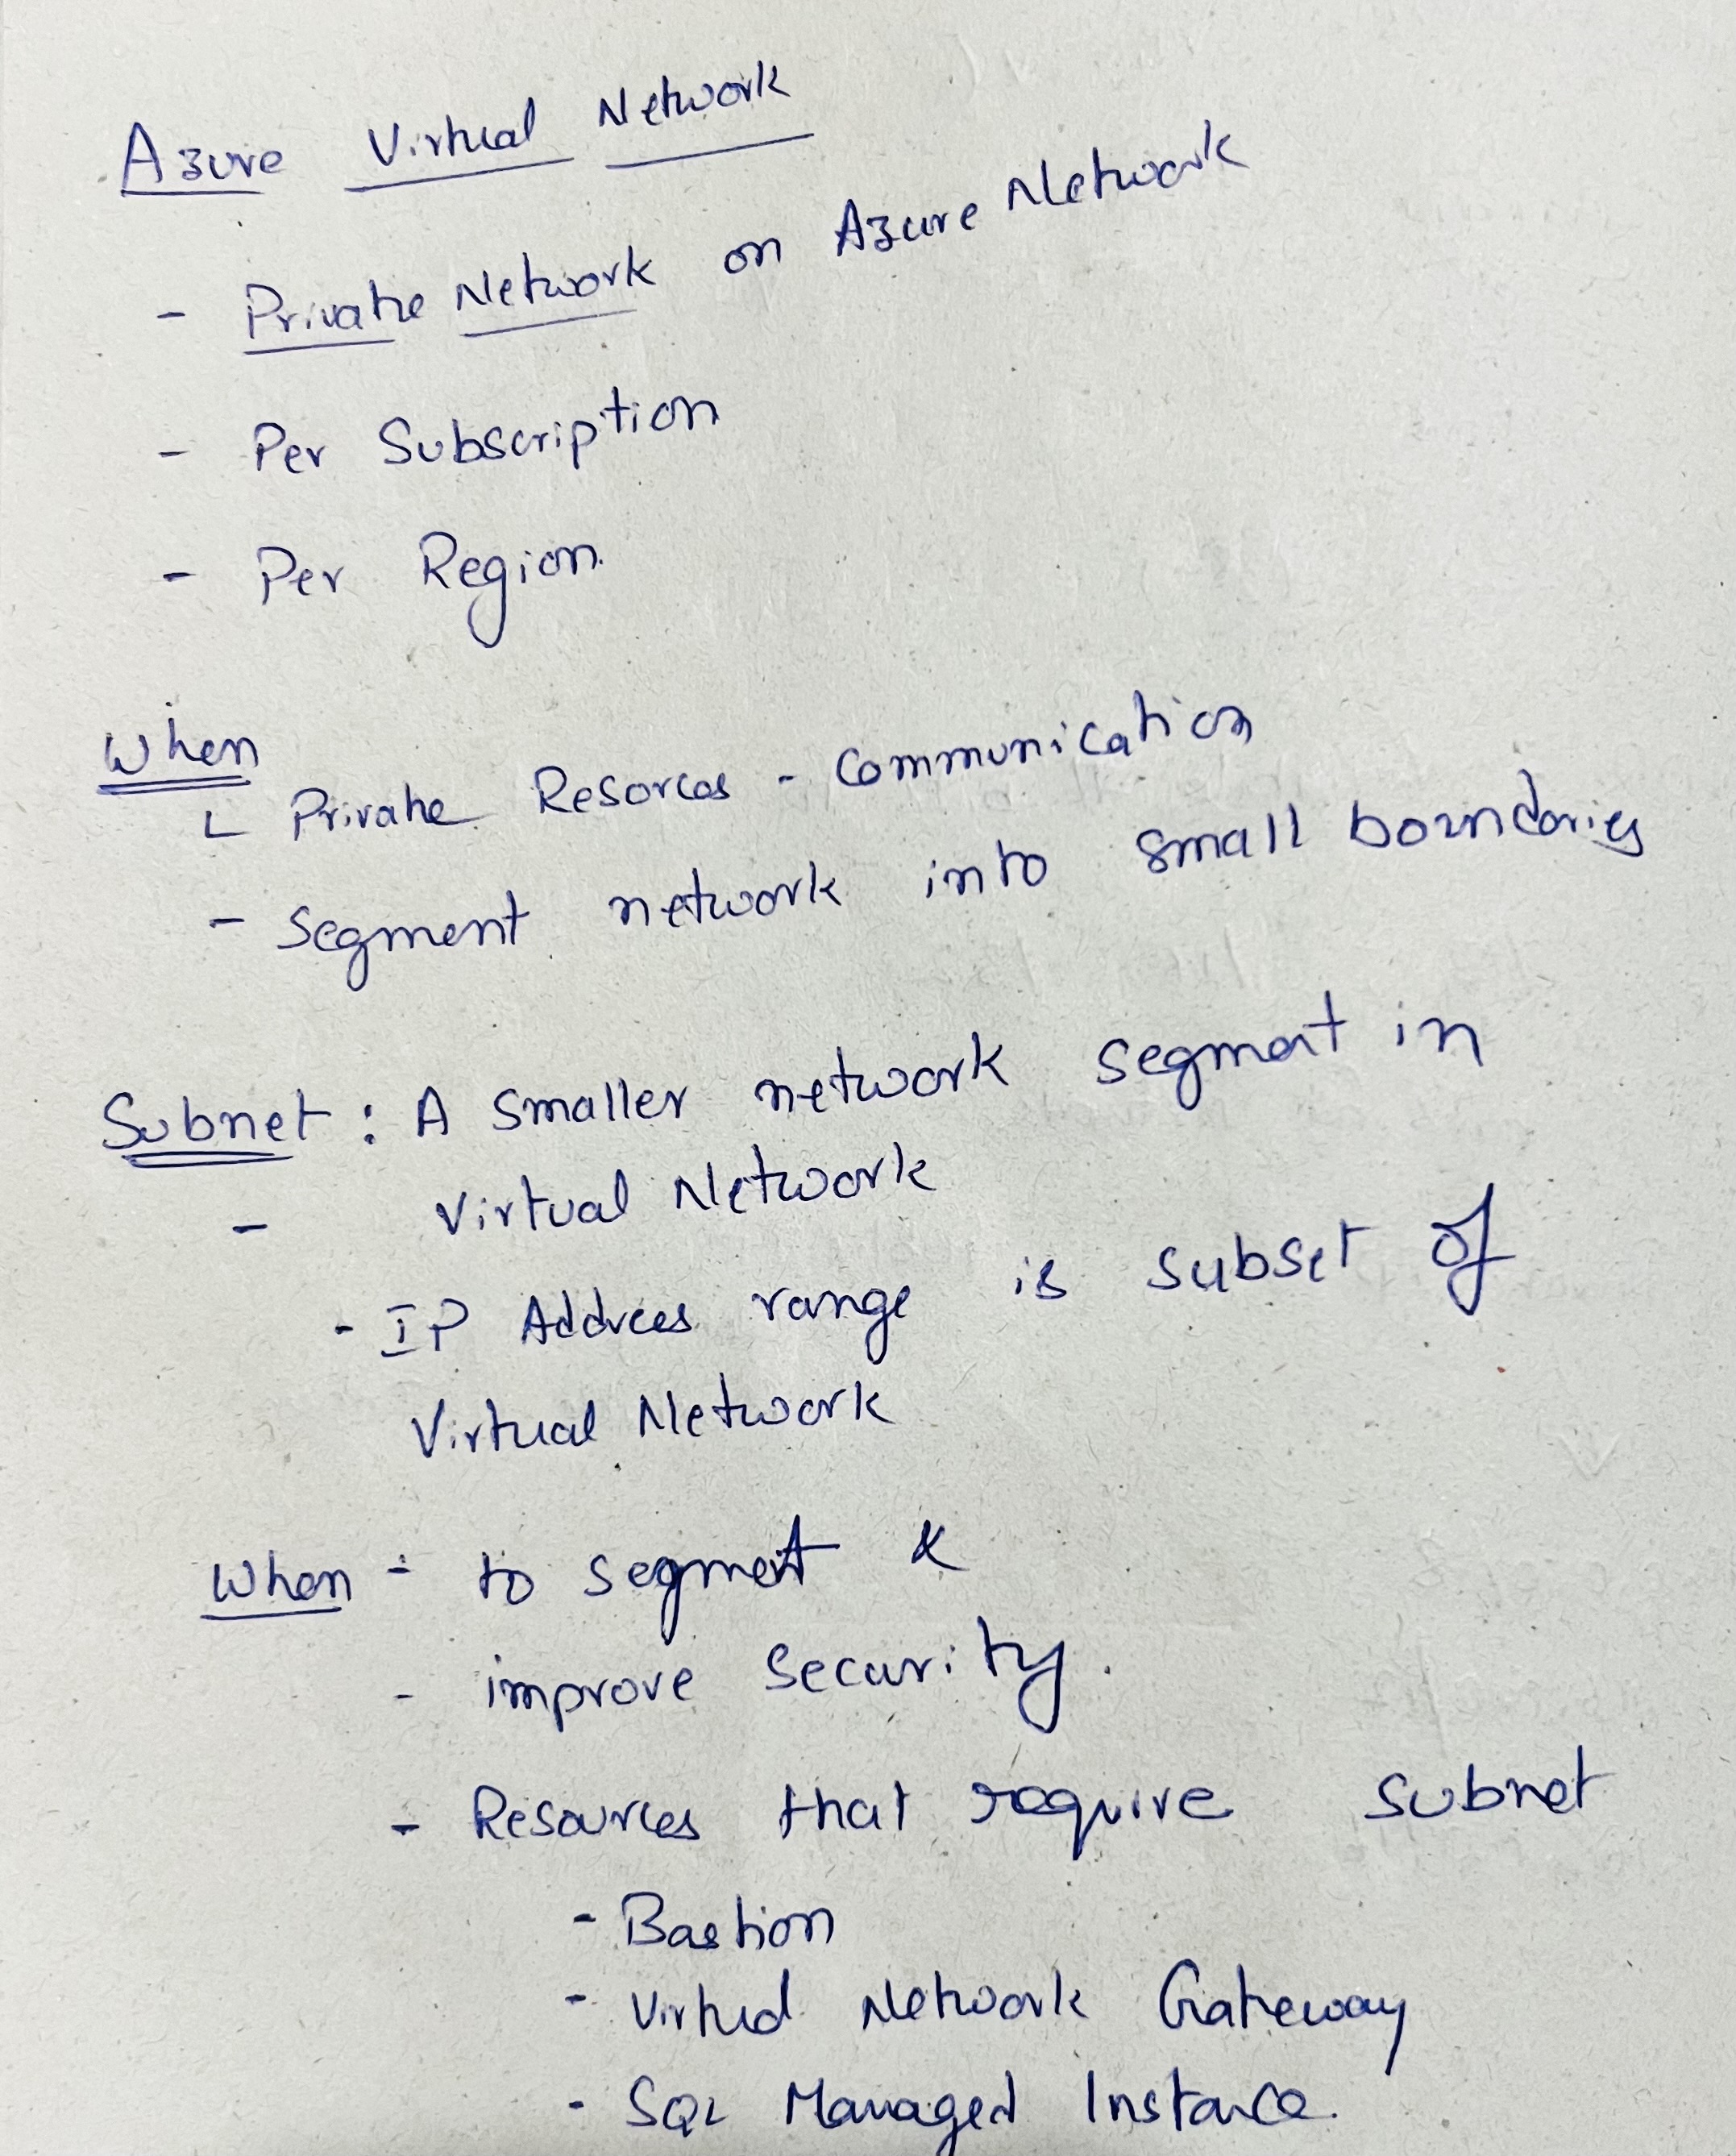 Azure Virtual Network
- Private Network on Azure Network
- Per Subscription
- Per Region.
When
L Private Resorces - Communication
- Segment network into small boundaries
Subnet : A smaller network segment in
- Virtual Network
- IP Address range is subset of
Virtual Network
When - to segment &
- improve security.
- Resources that require subnet
- Bastion
- Virtual Network Gateway
- SQL Managed Instance